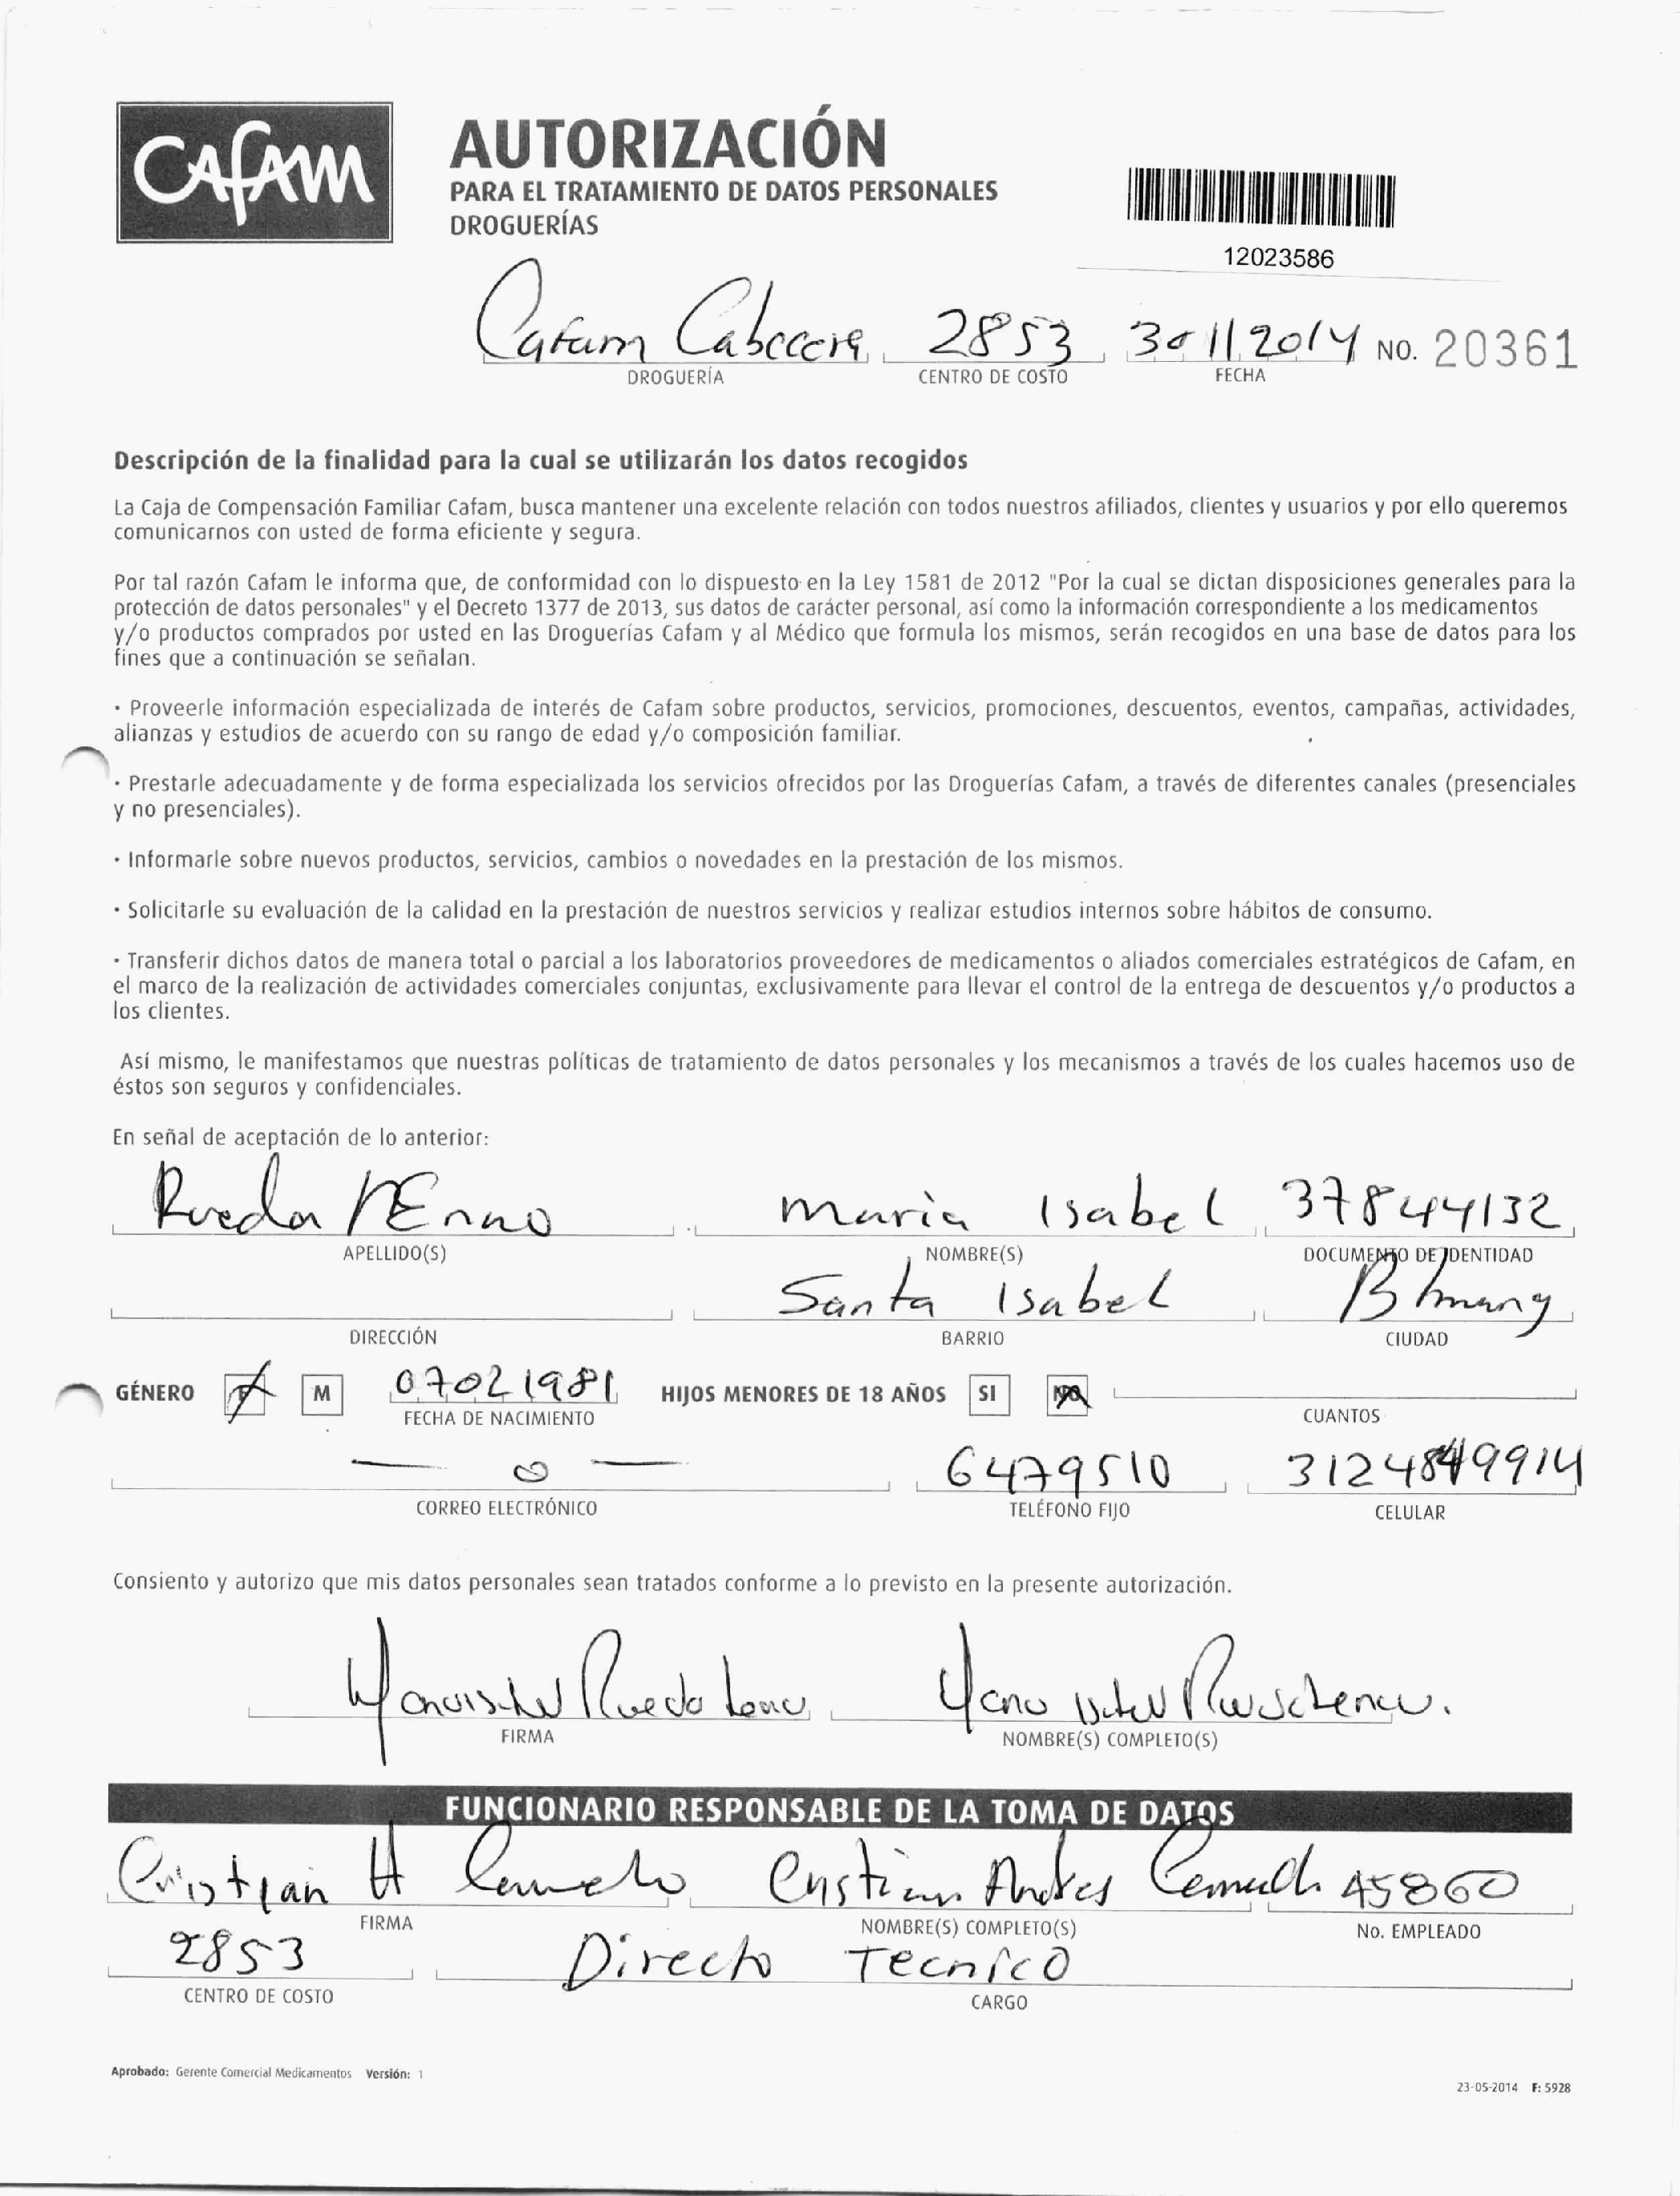 CAFAM
AUTORIZACIÓN
PARA EL TRATAMIENTO DE DATOS PERSONALES
DROGUERÍAS
12023586
Cafam Cabecera 2853 30112014 NO. 20361
DROGUERÍA CENTRO DE COSTO FECHA
Descripción de la finalidad para la cual se utilizarán los datos recogidos
La Caja de Compensación Familiar Cafam, busca mantener una excelente relación con todos nuestros afiliados, clientes y usuarios y por ello queremos
comunicarnos con usted de forma eficiente y segura.
Por tal razón Cafam le informa que, de conformidad con lo dispuesto en la Ley 1581 de 2012 "Por la cual se dictan disposiciones generales para la
protección de datos personales" y el Decreto 1377 de 2013, sus datos de carácter personal, así como la información correspondiente a los medicamentos
y/o productos comprados por usted en las Droguerías Cafam y al Médico que formula los mismos, serán recogidos en una base de datos para los
fines que a continuación se señalan.
· Proveerle información especializada de interés de Cafam sobre productos, servicios, promociones, descuentos, eventos, campañas, actividades,
alianzas y estudios de acuerdo con su rango de edad y/o composición familiar.
· Prestarle adecuadamente y de forma especializada los servicios ofrecidos por las Droguerías Cafam, a través de diferentes canales (presenciales
y no presenciales).
· Informarle sobre nuevos productos, servicios, cambios o novedades en la prestación de los mismos.
· Solicitarle su evaluación de la calidad en la prestación de nuestros servicios y realizar estudios internos sobre hábitos de consumo.
· Transferir dichos datos de manera total o parcial a los laboratorios proveedores de medicamentos o aliados comerciales estratégicos de Cafam, en
el marco de la realización de actividades comerciales conjuntas, exclusivamente para llevar el control de la entrega de descuentos y/o productos a
los clientes.
Así mismo, le manifestamos que nuestras políticas de tratamiento de datos personales y los mecanismos a través de los cuales hacemos uso de
éstos son seguros y confidenciales.
En señal de aceptación de lo anterior:
Rueda maria Isabel 37844132
APELLIDO(S) NOMBRE(S) DOCUMENTO DE IDENTIDAD
Santa Isabel
DIRECCIÓN BARRIO CIUDAD
GÉNERO F M 07021981 HIJOS MENORES DE 18 AÑOS SI NO
FECHA DE NACIMIENTO CUANTOS
— 0 — 6479510
CORREO ELECTRÓNICO TELÉFONO FIJO CELULAR
Consiento y autorizo que mis datos personales sean tratados conforme a lo previsto en la presente autorización.
Rueda
FIRMA NOMBRE(S) COMPLETO(S)
FUNCIONARIO RESPONSABLE DE LA TOMA DE DATOS
Cristian A Cristian Andres 45860
FIRMA NOMBRE(S) COMPLETO(S) No. EMPLEADO
2853 Directo Tecnico
CENTRO DE COSTO CARGO
Aprobado: Gerente Comercial Medicamentos Versión: 1
23-05-2014 F: 5928